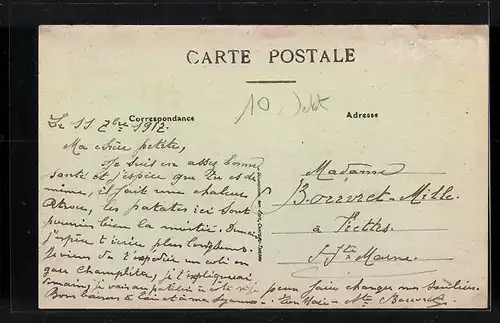 CARTE POSTALE
10
Correspondance
Adresse
Le 11 7bre 1912.
Ma chère petite,
Je suis en assez bonne
santé et j'espère que tu es de
même, il fait une chaleur
atroce, les patates ici sont
pourries bien la moitié. Demain
j'espère t'écrire plus longtemps.
Je viens de t'expédier un colis en
gare Champlitte, je t'expliquerai
demain, je vais au patelin à côté
pour faire changer ma
Bons baisers à toi et à ma
Madame
Bouvret-Mille
à
Hte Marne.
Bouvret